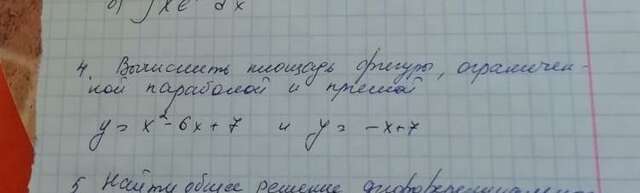 ∫ x e dx
4. Вычислить площадь фигуры, ограничен-
ной параболой и прямой
y = x² - 6x + 7 и y = -x + 7
5 Найти общее решение